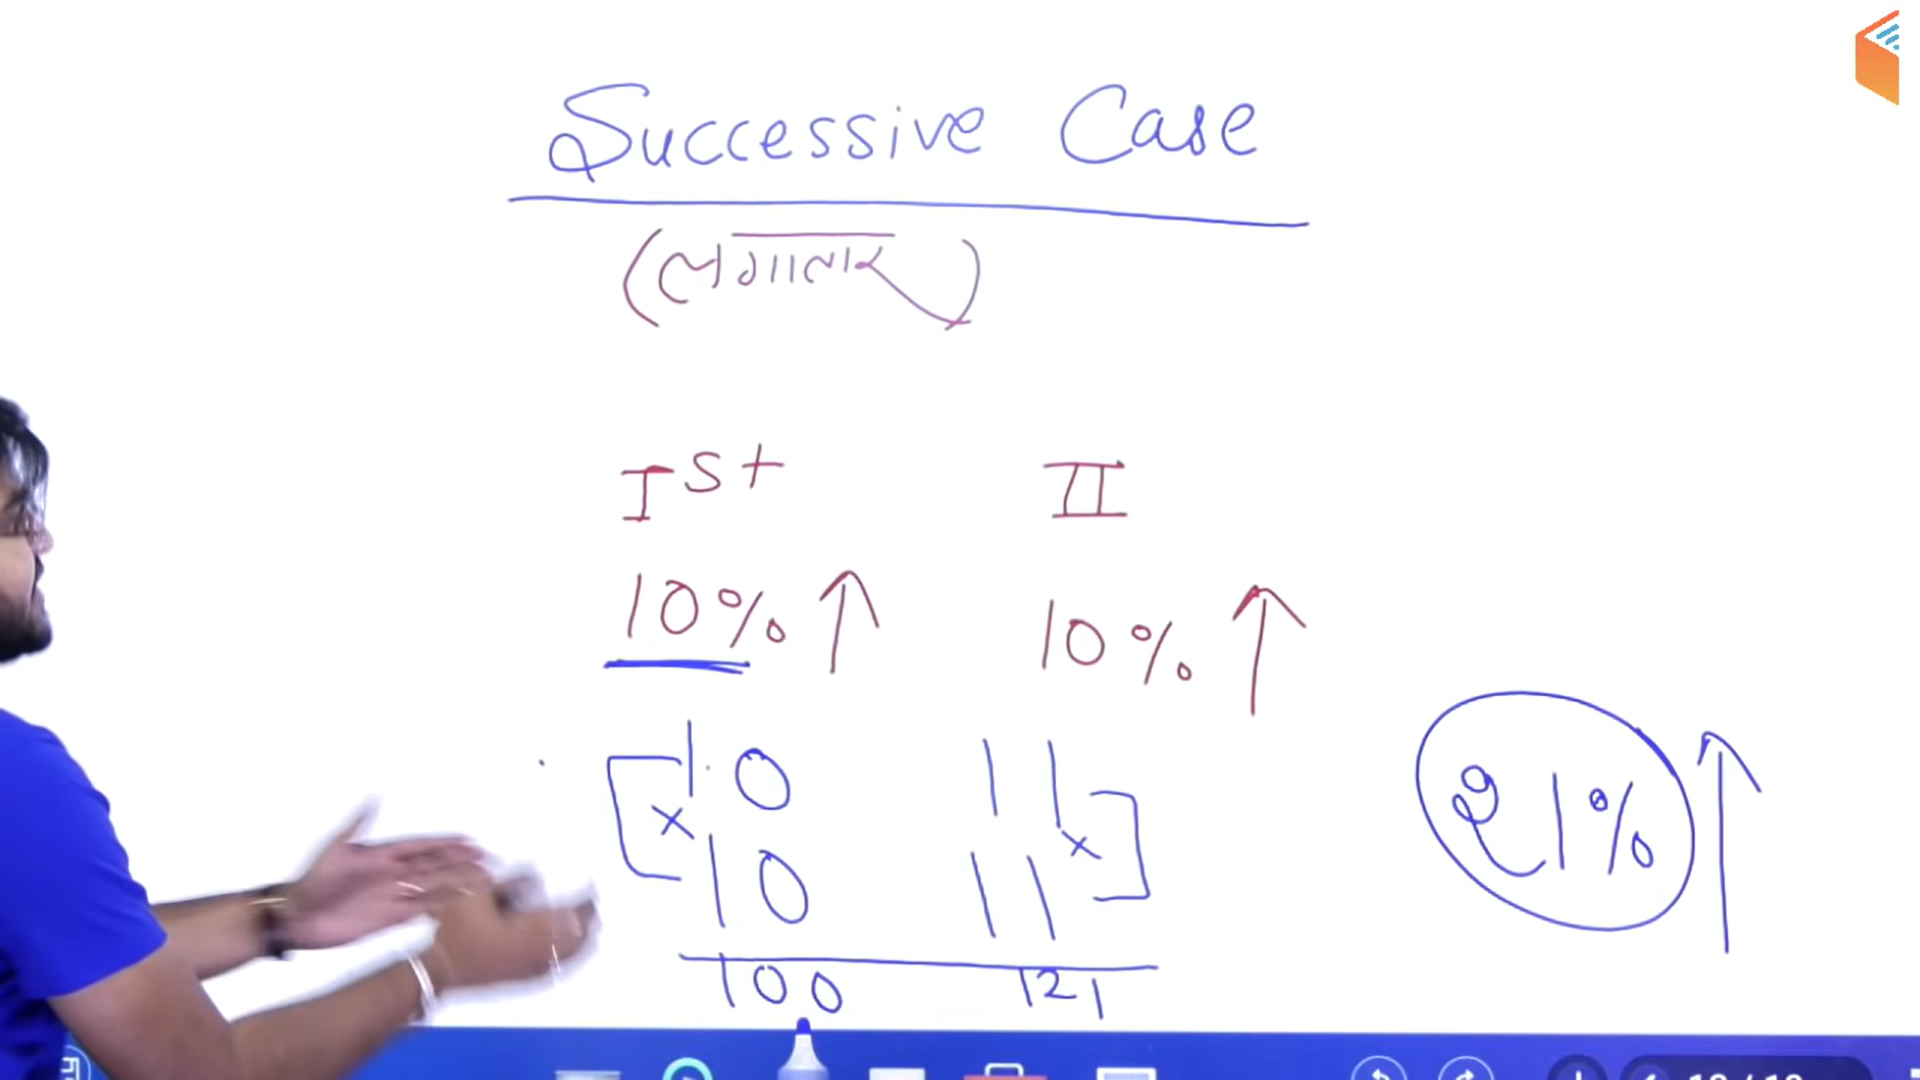 Successive Case
(लगातार)
Ist II
10% ↑ 10% ↑
10 11
× ×
10 11
21% ↑
100 121